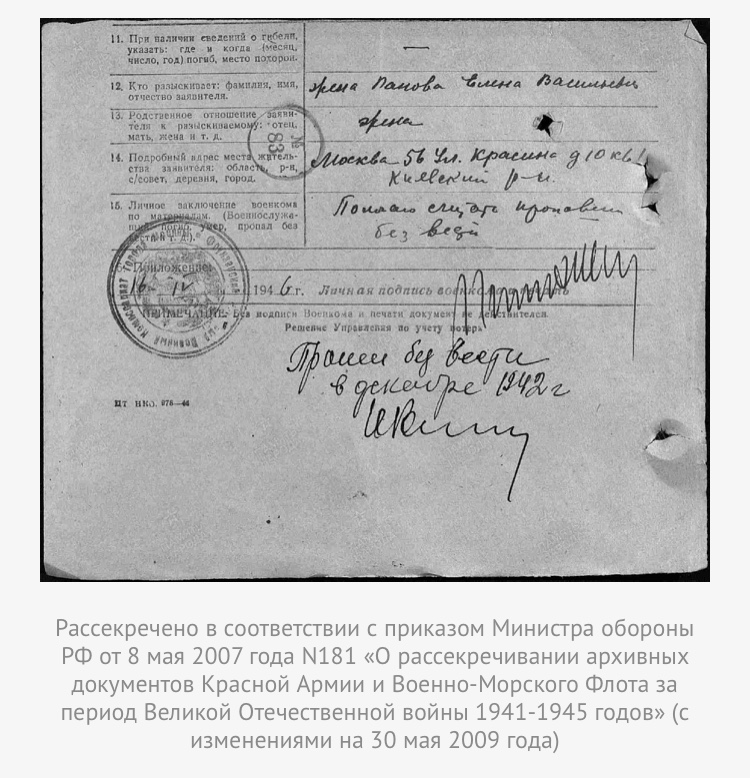 11. При наличии сведений о гибели,
указать: где и когда (месяц,
число, год) погиб, место похорон.
—
12. Кто разыскивает: фамилия, имя,
отчество заявителя.
жена Панова Елена Васильевн
13. Родственное отношение заяви-
теля к разыскиваемому: отец,
мать, жена и т. д.
жена
14. Подробный адрес места житель-
ства заявителя: область, р-н,
с/совет, деревня, город.
Москва 56 Ул. Красина д 10 кв
Киевский р-н.
15. Личное заключение военкома
по материалам. (Военнослужа-
щий погиб, умер, пропал без
вести и т. д.).
Полагаю считать пропавш
без вести
Приложение
16 IV 1946 г. Личная подпись военкома и печать
ПРИМЕЧАНИЕ: Без подписи Военкома и печати документ не действителен.
Решение Управления по учету потерь
Пропал без вести
в декабре 1942 г
ЦТ НКО. 978—46
Рассекречено в соответствии с приказом Министра обороны
РФ от 8 мая 2007 года N181 «О рассекречивании архивных
документов Красной Армии и Военно-Морского Флота за
период Великой Отечественной войны 1941-1945 годов» (с
изменениями на 30 мая 2009 года)